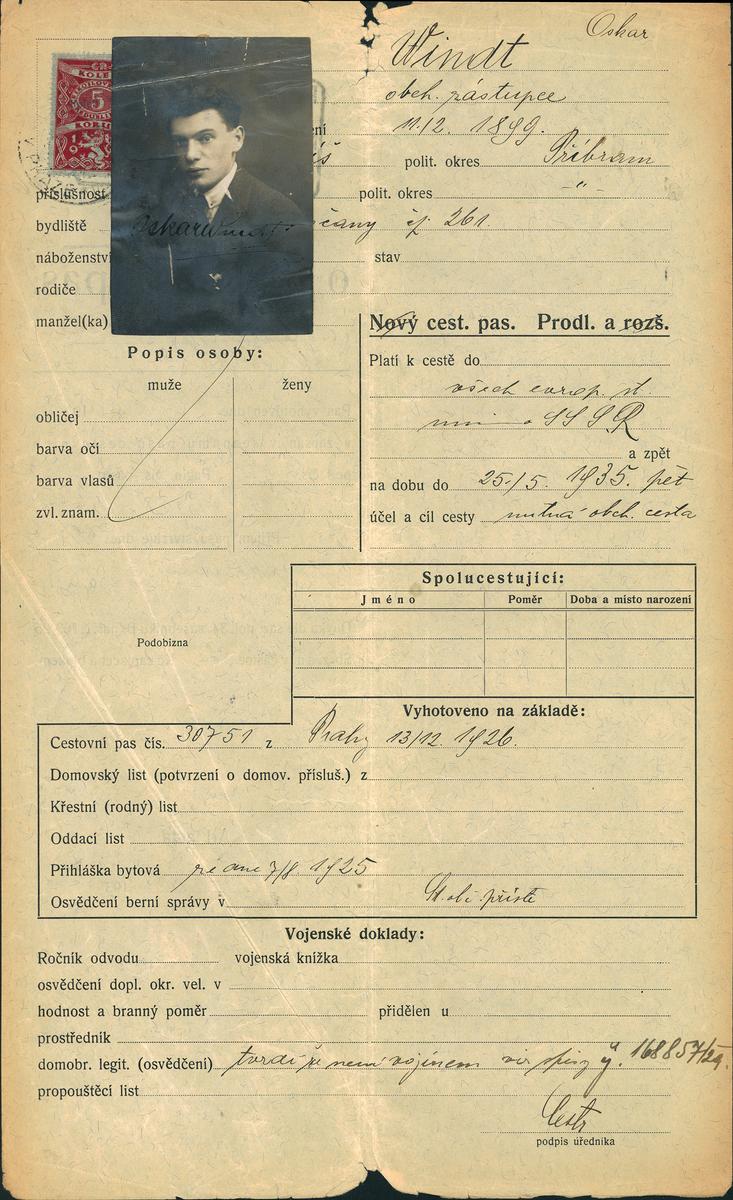 Oskar
Windt
obch. zástupce
11.12. 1899.
polit. okres Příbram
příslušnost polit. okres -"-
bydliště čany čp. 261.
Oskar Windt
náboženství stav
rodiče
manžel(ka)
Nový cest. pas. Prodl. a rozš.
Popis osoby:
muže ženy
obličej
barva očí
barva vlasů
zvl. znam.
Platí k cestě do
všech evrop. st.
mimo SSSR
a zpět
na dobu do 25./5. 1935. pět
účel a cíl cesty nutná obch. cesta
Spolucestující:
Jméno Poměr Doba a místo narození
Podobizna
Vyhotoveno na základě:
Cestovní pas čís. 30751 z Prahy 13/12. 1926.
Domovský list (potvrzení o domov. přísluš.) z
Křestní (rodný) list
Oddací list
Přihláška bytová ze dne 7/8. 1925
Osvědčení berní správy v
Vojenské doklady:
Ročník odvodu vojenská knížka
osvědčení dopl. okr. vel. v
hodnost a branný poměr přidělen u
prostředník
domobr. legit. (osvědčení) tvrdí že není vojínem viz spisy č. 168857/29.
propouštěcí list
podpis úředníka